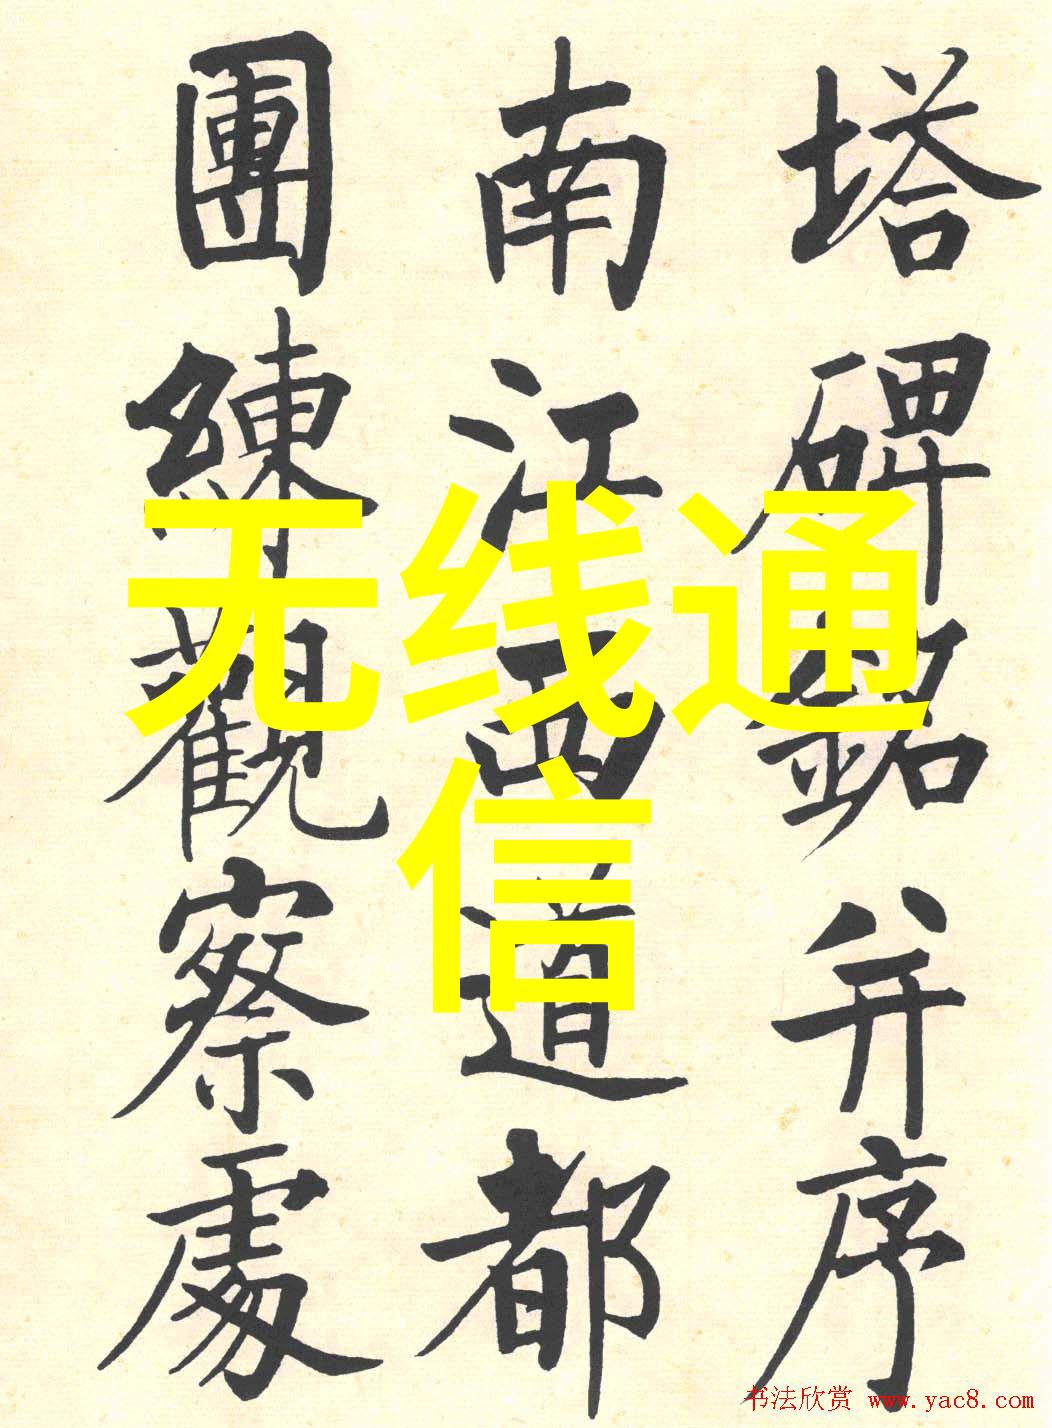 塔碑銘并序
南江西道都
團練觀察處
无线通
信
书法欣赏 www.yac8.com